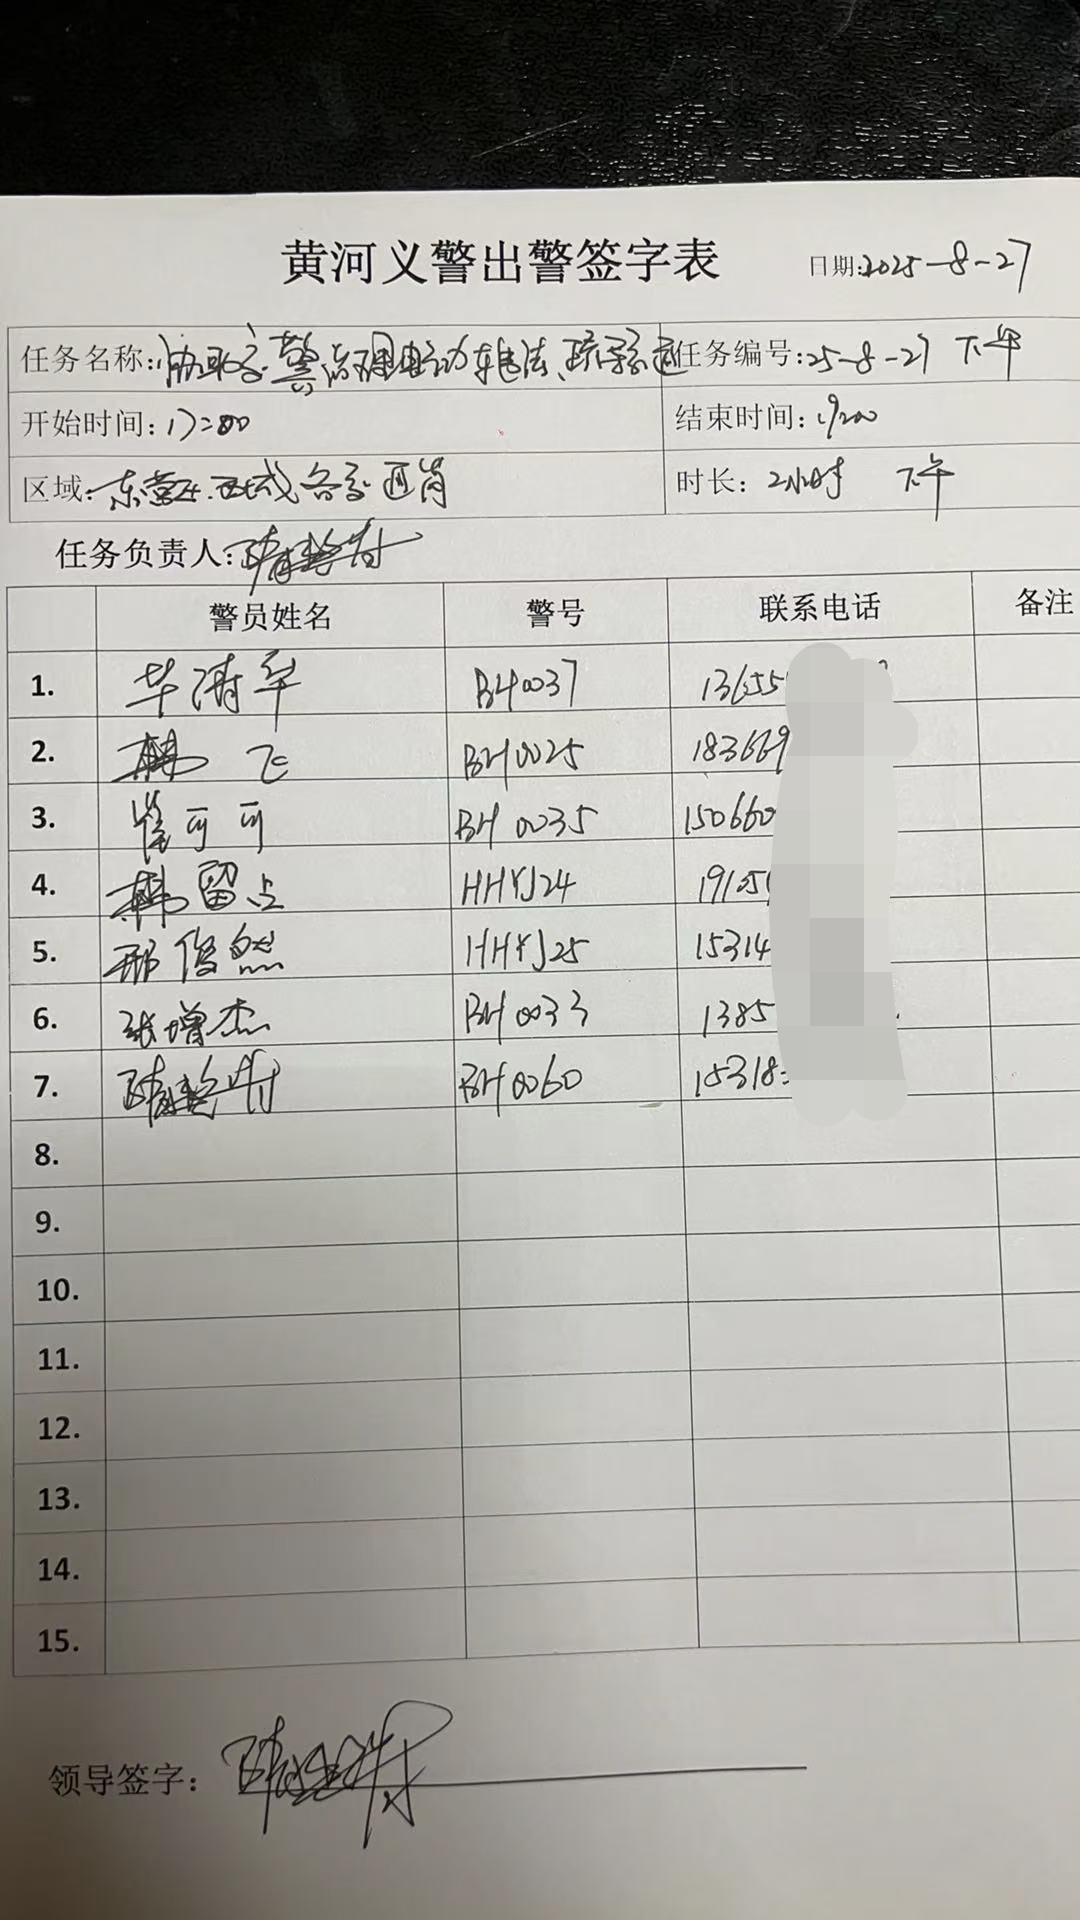 黄河义警出警签字表 日期:2025-8-27
任务名称:协助交警治理电动车违法、疏导交通 任务编号:25-8-27 下午
开始时间:17:00 结束时间:19:00
区域:东营区西城各交通岗 时长:2小时 下午
任务负责人:
警员姓名 警号 联系电话 备注
1. 毕涛军 BH0037 13655
2. 韩飞 BH0025 183669
3. 崔可可 BH0035 150660
4. 韩留占 HHYJ24 19105
5. 邢俊然 HHYJ25 15314
6. 张增杰 BH0033 1385
7. BH0060 15318
8.
9.
10.
11.
12.
13.
14.
15.
领导签字: